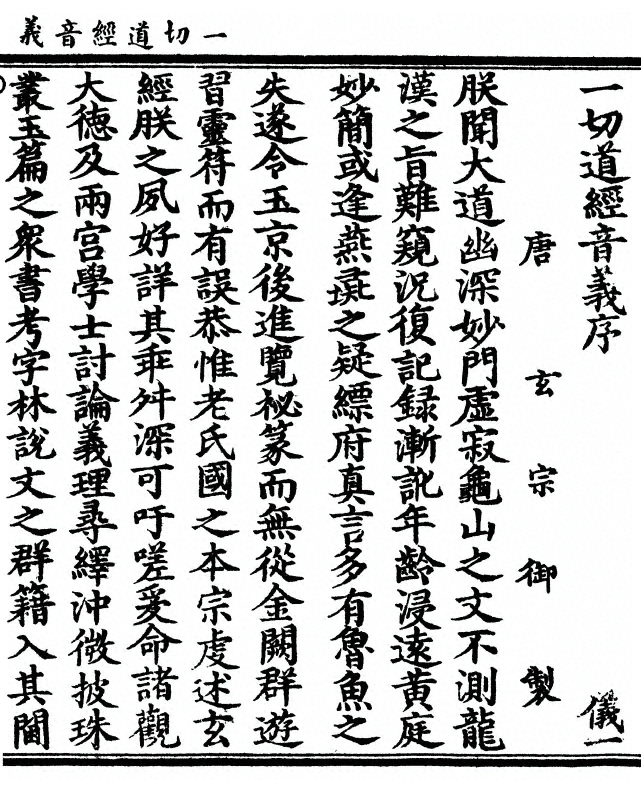 一切道經音義
一切道經音義序
儀一
唐玄宗御製
朕聞大道幽深妙門虛寂龜山之文不測龍
漢之旨難窺況復記録漸訛年齡浸遠黄庭
妙簡或逢燕㷼之疑縹府真言多有魯魚之
失遂令玉京後進覽祕篆而無從金闕群遊
習靈符而有誤恭惟老氏國之本宗虔述玄
經朕之夙好詳其乖舛深可吁嗟爰命諸觀
大德及兩宫學士討論義理尋繹沖微披珠
叢玉篇之衆書考字林說文之群籍入其閫